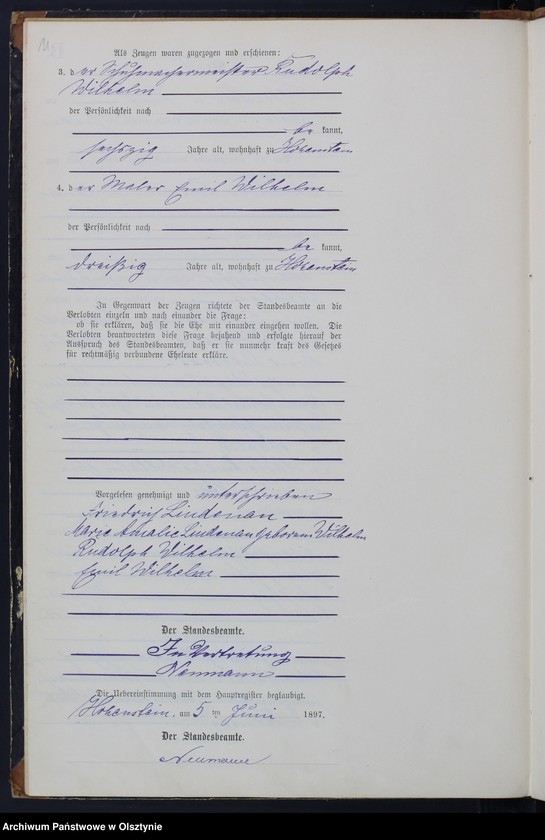 Als Zeugen waren zugezogen und erschienen:
3. der Schuhmachermeister Rudolph
Wilhelm
der Persönlichkeit nach
be kannt,
sechszig Jahre alt, wohnhaft zu Hohenstein
4. der Maler Emil Wilhelm
der Persönlichkeit nach
be kannt,
dreißig Jahre alt, wohnhaft zu Hohenstein
In Gegenwart der Zeugen richtete der Standesbeamte an die
Verlobten einzeln und nach einander die Frage:
ob sie erklären, daß sie die Ehe mit einander eingehen wollen. Die
Verlobten beantworteten diese Frage bejahend und erfolgte hierauf der
Ausspruch des Standesbeamten, daß er sie nunmehr kraft des Gesetzes
für rechtmäßig verbundene Eheleute erkläre.
Vorgelesen genehmigt und unterschrieben
Friedrich Lindenau
Marie Amalie Lindenau geborene Wilhelm
Rudolph Wilhelm
Emil Wilhelm
Der Standesbeamte.
In Vertretung
Neumann
Die Uebereinstimmung mit dem Hauptregister beglaubigt.
Hohenstein, am 5 ten Juni 1897.
Der Standesbeamte.
Neumann
Archiwum Państwowe w Olsztynie